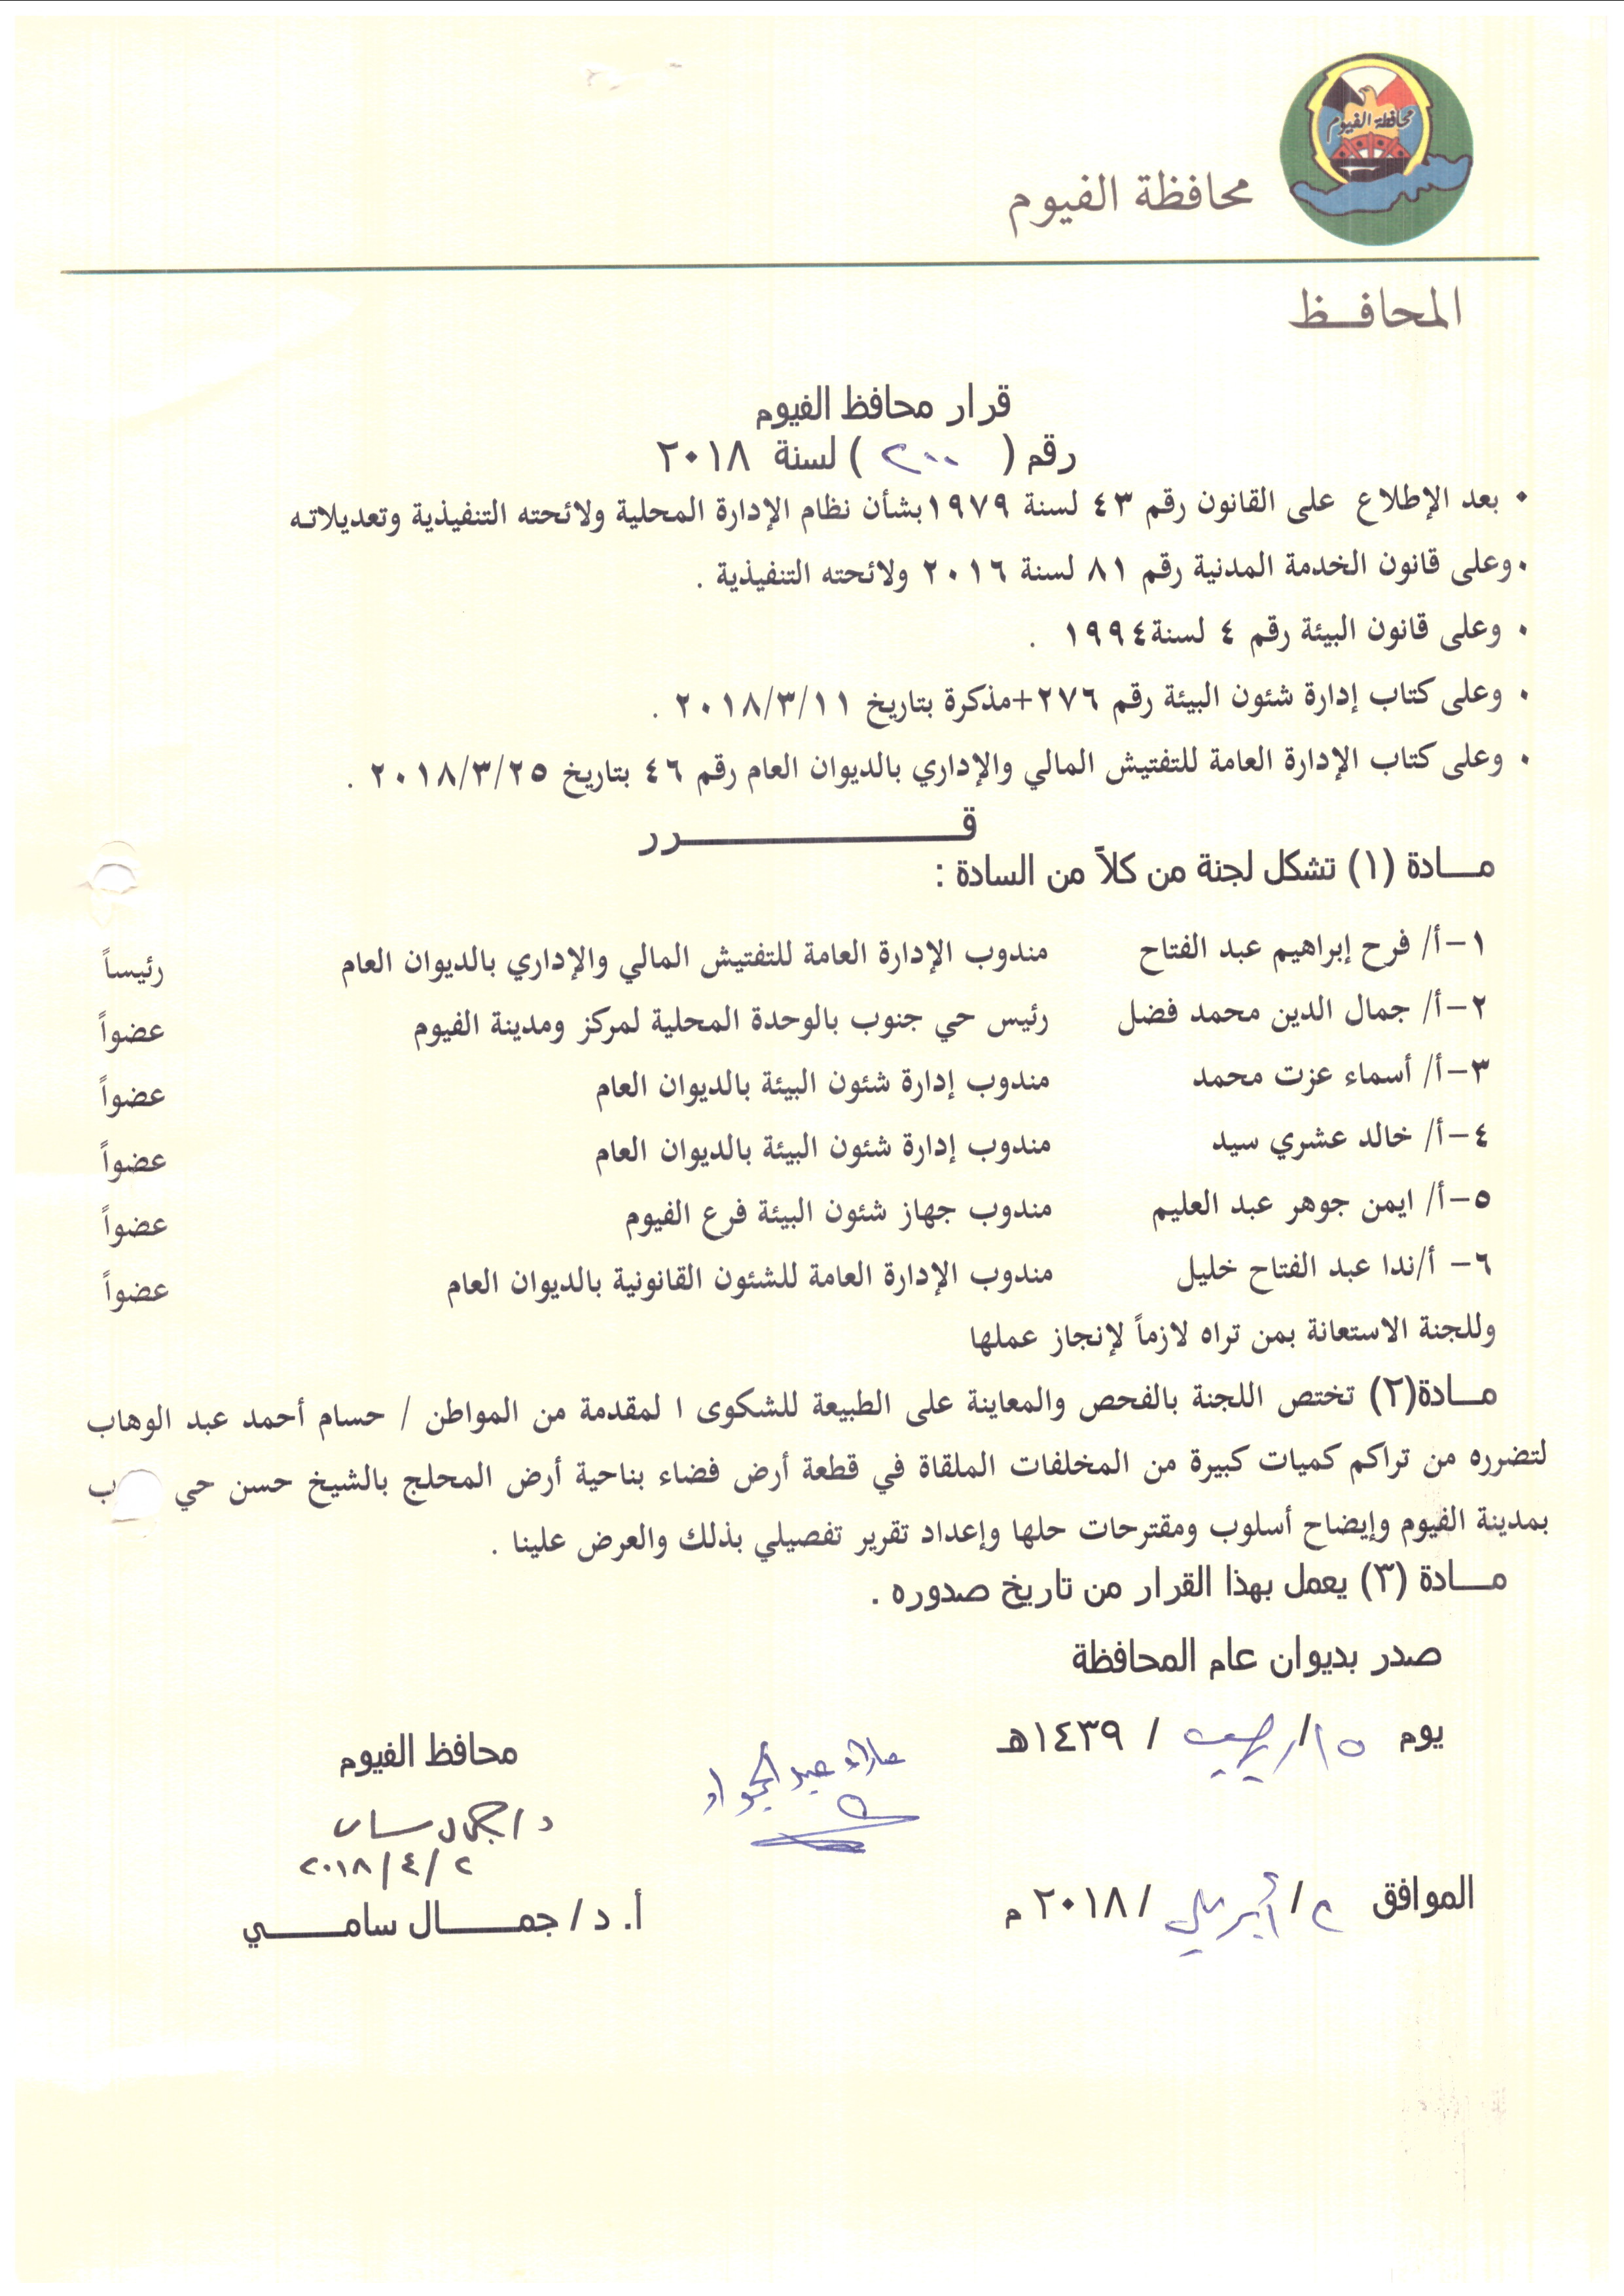 محافظة الفيوم
محافظة الفيوم
المحافـــظ
قرار محافظ الفيوم
رقم ( ٢٠٠ ) لسنة ٢٠١٨
• بعد الإطلاع على القانون رقم ٤٣ لسنة ١٩٧٩بشأن نظام الإدارة المحلية ولائحته التنفيذية وتعديلاته
•وعلى قانون الخدمة المدنية رقم ٨١ لسنة ٢٠١٦ ولائحته التنفيذية .
• وعلى قانون البيئة رقم ٤ لسنة١٩٩٤ .
• وعلى كتاب إدارة شئون البيئة رقم ٢٧٦+مذكرة بتاريخ ٢٠١٨/٣/١١ .
• وعلى كتاب الإدارة العامة للتفتيش المالي والإداري بالديوان العام رقم ٤٦ بتاريخ ٢٠١٨/٣/٢٥ .
قــــــــــــــرر
مـــادة (١) تشكل لجنة من كلاً من السادة :
١-أ/ فرح إبراهيم عبد الفتاح مندوب الإدارة العامة للتفتيش المالي والإداري بالديوان العام رئيساً
٢-أ/ جمال الدين محمد فضل رئيس حي جنوب بالوحدة المحلية لمركز ومدينة الفيوم عضواً
٣-أ/ أسماء عزت محمد مندوب إدارة شئون البيئة بالديوان العام عضواً
٤-أ/ خالد عشري سيد مندوب إدارة شئون البيئة بالديوان العام عضواً
٥-أ/ ايمن جوهر عبد العليم مندوب جهاز شئون البيئة فرع الفيوم عضواً
٦- أ/ندا عبد الفتاح خليل مندوب الإدارة العامة للشئون القانونية بالديوان العام عضواً
وللجنة الاستعانة بمن تراه لازماً لإنجاز عملها
مـــادة(٢) تختص اللجنة بالفحص والمعاينة على الطبيعة للشكوى ا لمقدمة من المواطن / حسام أحمد عبد الوهاب
لتضرره من تراكم كميات كبيرة من المخلفات الملقاة في قطعة أرض فضاء بناحية أرض المحلج بالشيخ حسن حي
بمدينة الفيوم وإيضاح أسلوب ومقترحات حلها وإعداد تقرير تفصيلي بذلك والعرض علينا .
مـــادة (٣) يعمل بهذا القرار من تاريخ صدوره .
صدر بديوان عام المحافظة
يوم ١٥/ رجب / ١٤٣٩هـ
محافظ الفيوم
د/جمال سامى
٢٠١٨/٤/٢
الموافق ٢/ أبريل / ٢٠١٨ م
أ. د/ جمـــــال سامـــــي